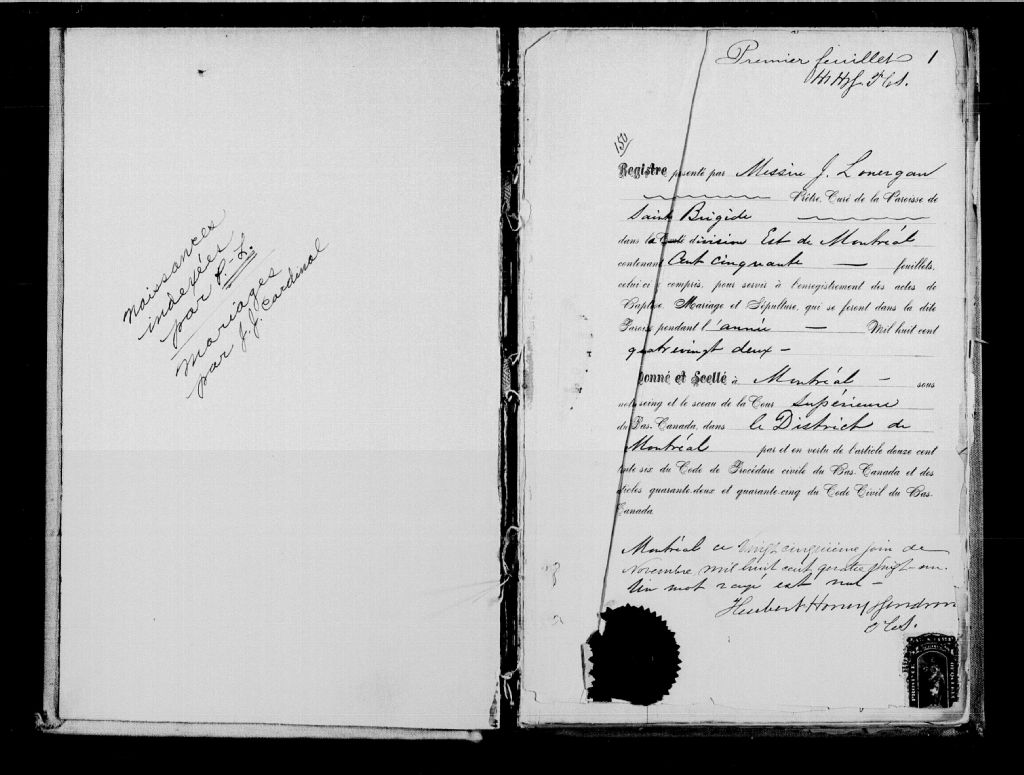 naissances
indexées
par P.-L.
mariages
par J. J. Cardinal
Premier feuillet 1
150
Registre présenté par Messire J. Lonergan
Prêtre, Curé de la Paroisse de
Saint Brigide
dans la division Est de Montréal
contenant Cent cinquante — feuillets,
celui-ci compris, pour servir à l'enregistrement des actes de
Baptême, Mariage et Sépulture, qui se feront dans la dite
Paroisse pendant l'année — Mil huit cent
quatrevingt deux -
Donné et Scellé à Montréal - sous
notre seing et le sceau de la Cour Supérieure
du Bas-Canada, dans le District de
Montréal par et en vertu de l'article douze cent
trente six du Code de Procédure civile du Bas-Canada et des
articles quarante-deux et quarante-cinq du Code Civil du Bas-
Canada
Montréal ce vingt cinquième jour de
Novembre mil huit cent quatre vingt-un.
Un mot rayé est nul -
Hubert Honey Gendron